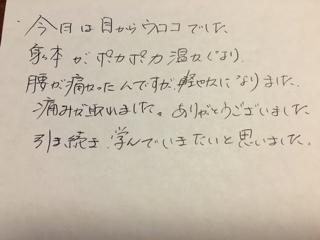 ・今日は目からウロコでした
身体がポカポカ温かくなり、
腰が痛かったんですが、軽やかになりました。
痛みが取れました。ありがとうございました
引き続き学んでいきたいと思いました。